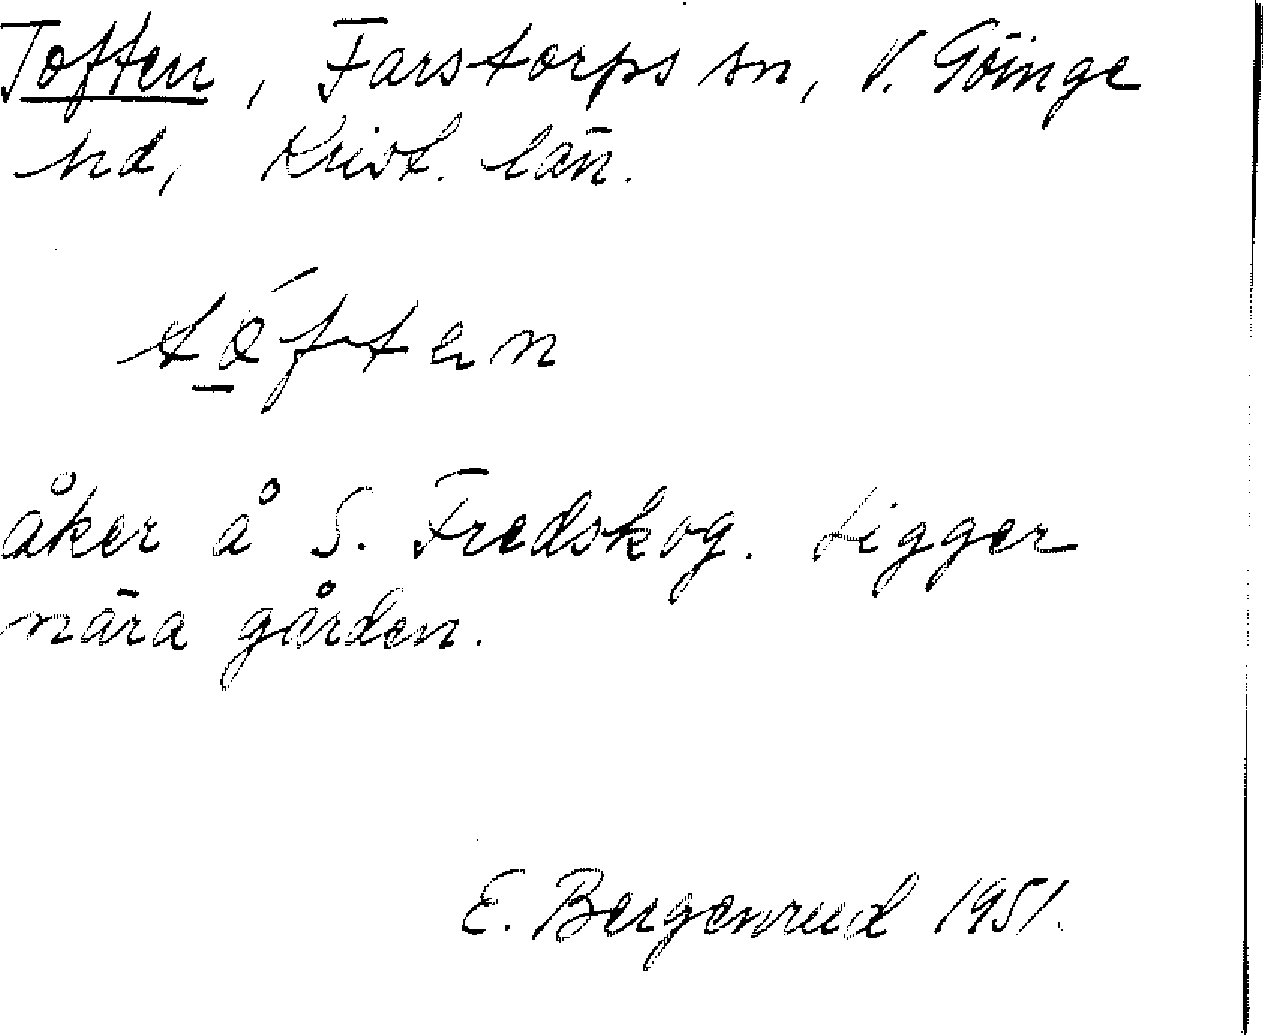 Toften, Farstorps sn, V. Göinge
hd, Krist. län.
tǫ́ften
åker å S. Fredskog. Ligger
nära gården.
E. Bergenrud 1951.